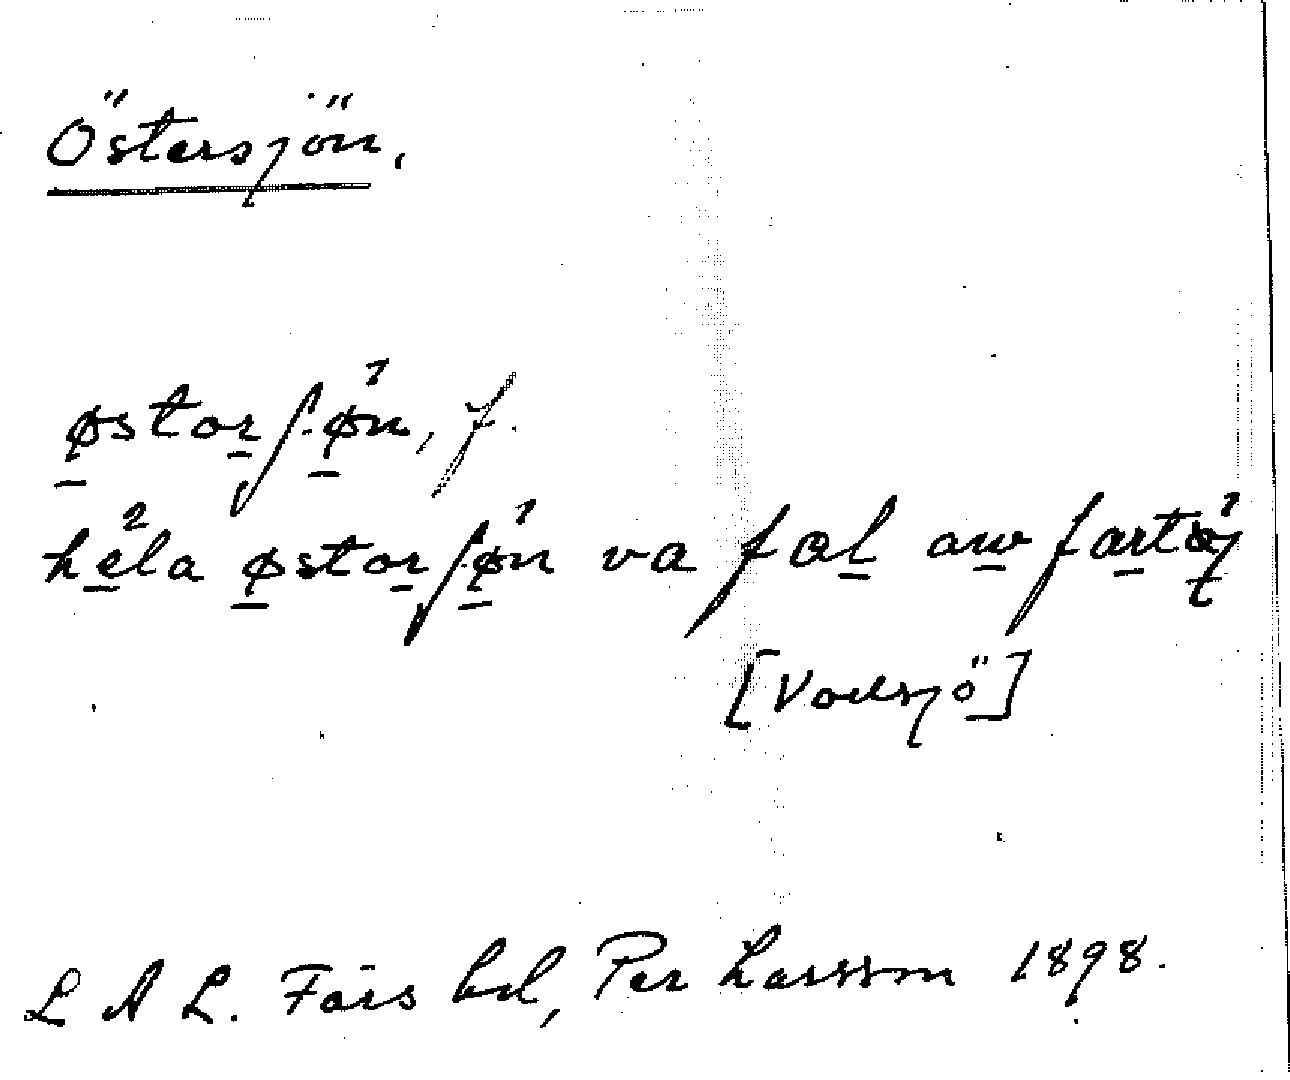 Östersjön.
østorʃøn, f.
hela østorʃøn va fal aw fartøy
[Vadsjö]
L A L. Färs hd, Per Larsson 1898.